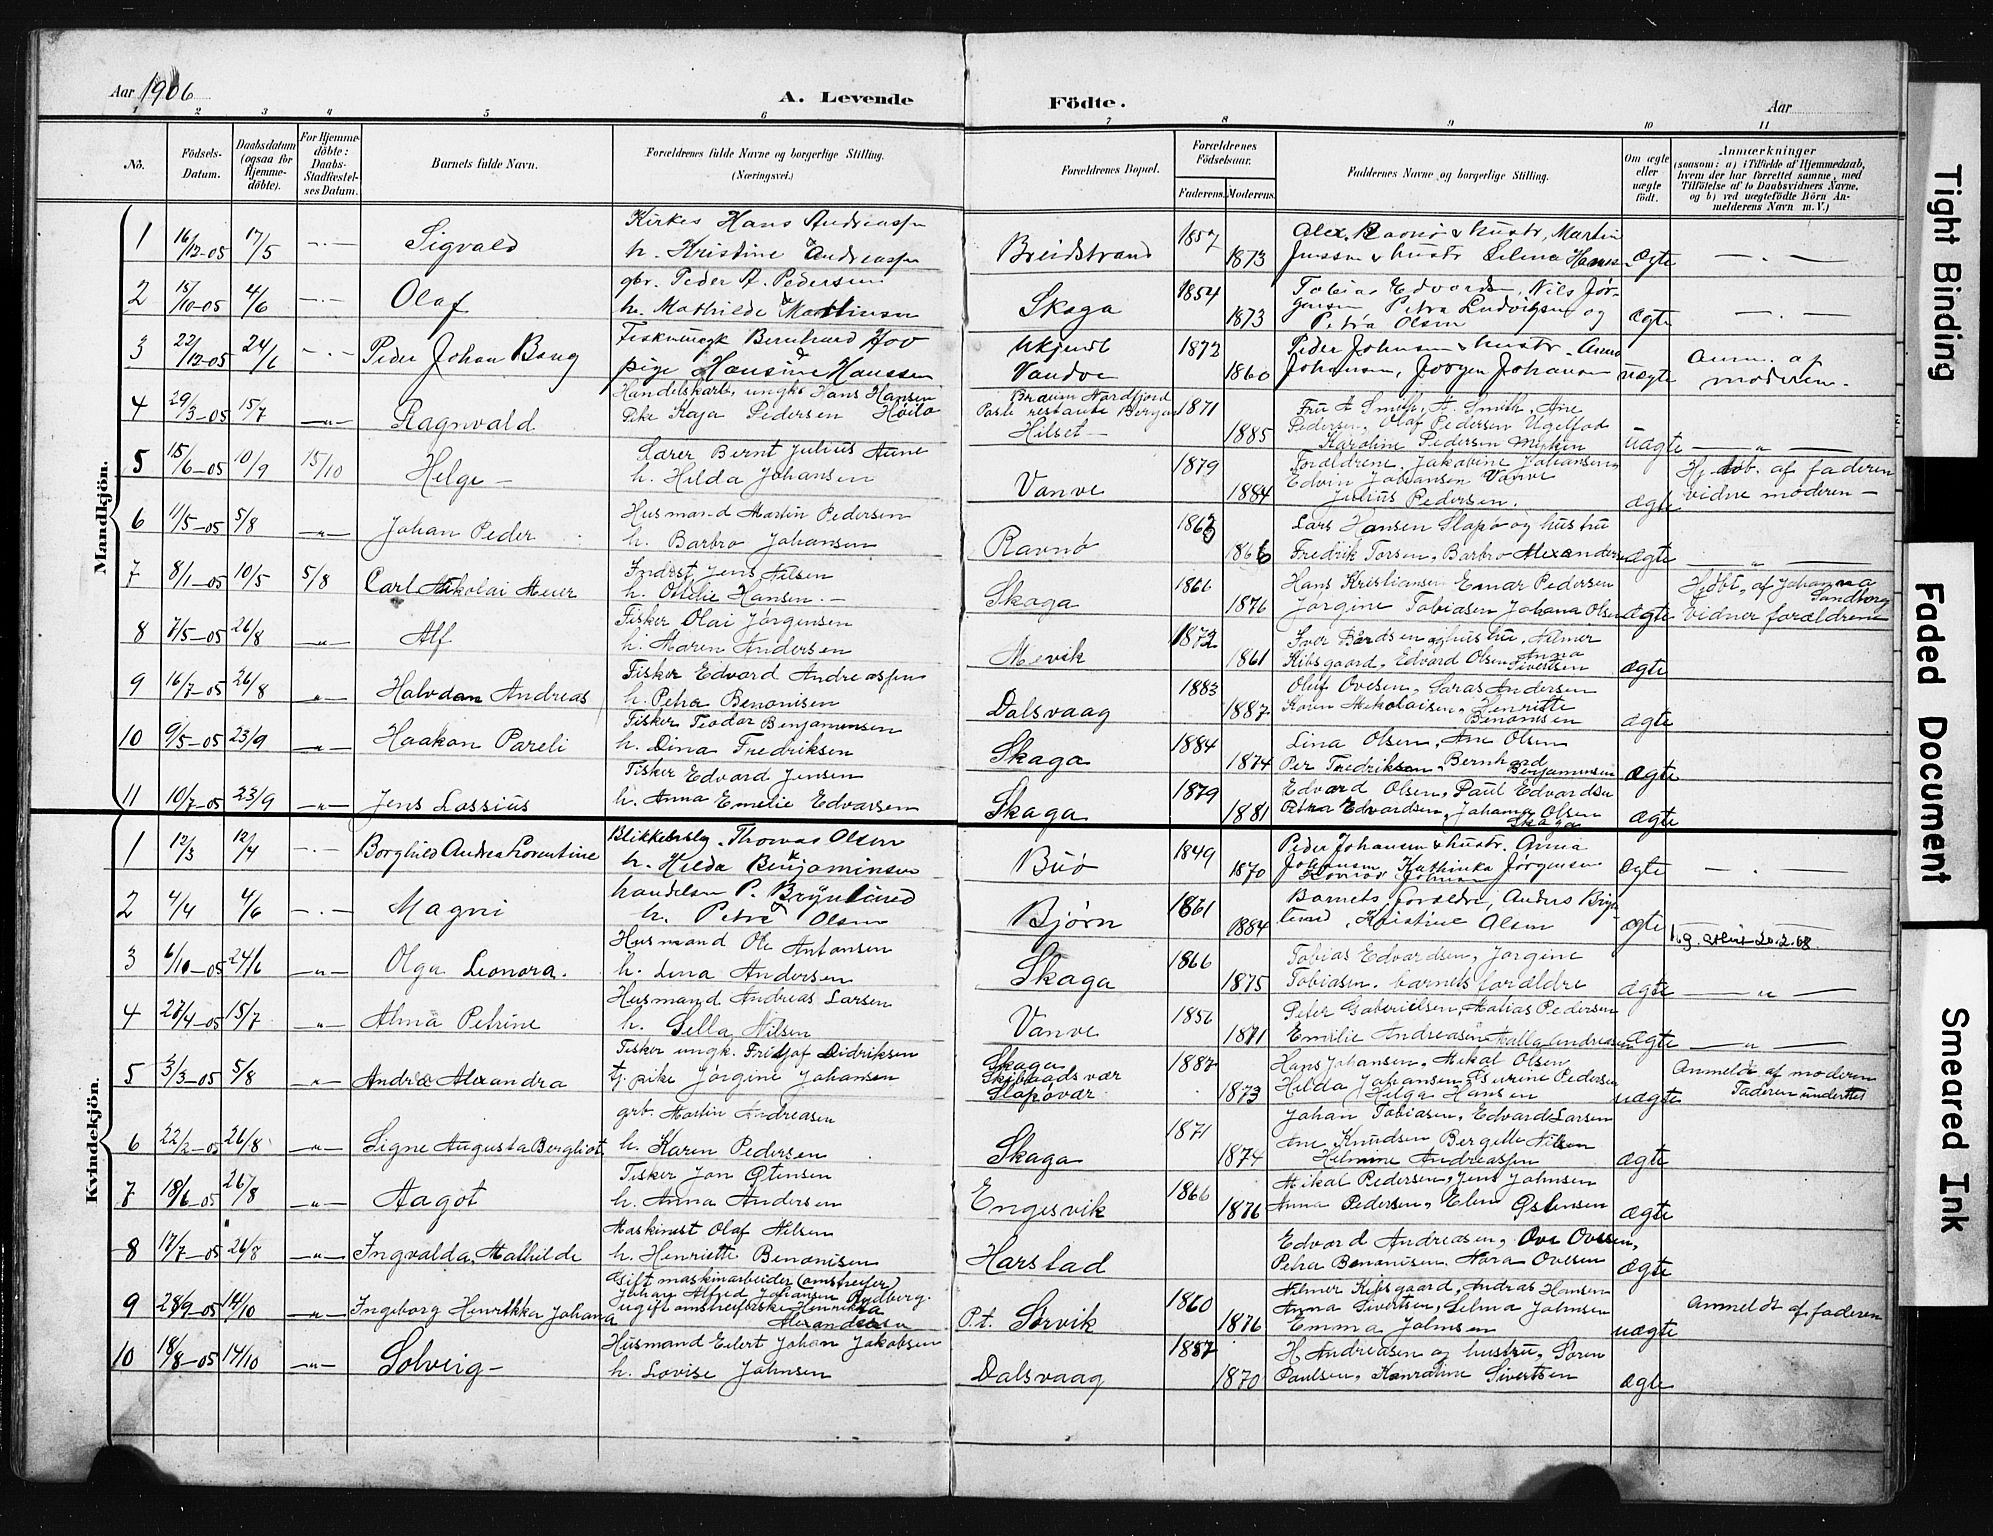 Aar 1906
A. Levende Födte.
Aar
1 2 3 4 5 6 7 8 9 10 11
No.
Födsels-Datum.
Daabsdatum (ogsaa for Hjemme-döbte).
For Hjemme-döbte: Daabs-Stadfæstel-ses Datum.
Barnets fulde Navn.
Forældrenes fulde Navne og borgerlige Stilling. (Næringsvei.)
Forældrenes Bopæl.
Forældrenes Födselsaar.
Faderens. Moderens.
Faddernes Navne og borgerlige Stilling.
Om ægte eller uægte födt.
Anmærkninger
(saasom: a) i Tilfælde af Hjemmedaab, hvem der har forrettet samme, med Tilföielse af to Daabsvidners Navne. og b) ved uægtefödte Börn An-melderens Navn m.V.)
Mandkjön.
1 16/12-05 17/5 -.- Sigvald
Kirkes Hans Andreassen
h. Kristine Andreassen
Breidstrand 1857 1873
Alex. Ravnø & hustr, Martin
Jenssen & hustr Selma Hansen
Ægte -.-
2 15/10-05 4/6 -.- Olaf
gbr. Peder A. Pedersen
h. Mathilde Mathisen
Skaga 1854 1873
Tobias Edvardsen, Nils Jør-
gensen Petra Ludvigsen og
Petra Olsen
ægte -.-
3 22/12-05 24/6 -.- Peder Johan Bang
Bernhard Hov
pige Hansine Hanssen
Ukjendt
Vandve 1872 1860
Peder Johnsen & hustr. Anna
Johansen, Jørgen Johansen
uægte
Anm. af
moderen.
4 29/3-05 15/7 -"- Ragnvald
Handelskarb, ungk. Hans Hansen
Pike Kaja Pedersen Høilo
Nordfjord
Poste restante Bergen
Hilset 1871 1885
Fru A Smith, A. Smith, Ane
Pedersen, Olaf Pedersen
Karoline Pedersen Myken
uægte -"-
5 15/6-05 10/9 15/10 Helge -
Lærer Bernt Julius Aune
h. Hilda Johansen
Vanve 1879 1884
Forældrene, Jakobine Johansen,
Edvin Johansen Vanve
Julius Pedersen.
ægte
Hj. døb. af faderen
vidne moderen -
6 11/5-05 5/8 -"- Johan Peder
Husmand Martin Pedersen
h. Barbro Johansen
Ravnø 1863 1866
Lars Hansen Slapø og hustru
Fredrik Torsen, Barbro Alexandersen
ægte -"-
7 8/1-05 10/5 5/8 Carl Nikolai Meier
Indrst, Jens Nilsen
h. Otthilie Hansen.-
Skaga 1866 1876
Hans Kristiansen Einar Pedersen
Jørgine Tobiasen Johana Olsen
ægte
Hjdbt. af Johanna
Sandberg
Vidner forældrene
8 7/5-05 26/8 -"- Alf
Fisker Olai Jørgensen
h. Maren Andersen
Mevik 1872 1861
Iver Bårdsen og hustru, Hilmer
Kibsgaard, Edvard Olsen Anna
Sivertsen
ægte
9 16/7-05 26/8 -"- Halvdan Andreas
Fisker Edvard Andreassen
h. Petra Benonisen
Dalsvaag 1883 1887
Oluf Ovesen, Saras Andersen
Karen Nikolaisen, Henriette
Benonisen
ægte
10 9/5-05 23/9 -"- Haakon Pareli
Fisker Teodor Benjaminsen
h. Dina Fredriksen
Skaga 1884 1874
Lina Olsen, Ane Olsen
Per Fredriksen, Bernhard
Benjaminsen
ægte
11 10/7-05 23/9 -"- Jens Lassius
Fisker Edvard Jensen
h. Anna Emelie Edvarsen
Skaga 1879 1881
Edvard Olsen, Paul Edvardsen
Petra Edvardsen, Johana Olsen
Skaga
ægte
Kvindekjön.
1 12/3 12/4 -.- Borghild Andrea Lorentine
Blikkenslg. Thomas Olsen
h. Hilda Benjaminsen
Buø 1849 1870
Peder Johansen & hustr. Anna
Johansen, Kathinka Jørgensen
ægte -.-
2 4/4 4/6 -.- Magni
handelsm P. Brynlund
h. Petra Olsen
Bjørn 1861 1884
Barnets forældre, Anders Bryn-
lund, Kristine Olsen
ægte
3 6/10-05 24/6 -"- Olga Leonora.
Husmand Ole Antonsen
h. Lina Andersen
Skaga 1866 1875
Tobias Edvardsen, Jørgine
Tobiasen. barnets forældre
ægte -"-
4 27/4-05 15/7 -"- Alma Petrine
Husmand Andreas Larsen
h. Sella Nilsen
Vanve 1856 1871
Peter Gabrielsen, Matias Pedersen
Emilie Andreasen, Malla Andreasen
ægte -"-
5 3/3-05 5/8 -"- Andrea Alexandra
Fisker ungk. Fridjof Didriksen
Tj. pike Jørgine Johansen
Skaga
Skibbaadsvær
Slapøvær 1882 1873
Hans Johansen, Mikal Olsen
Hilda Johansen, Pedersen
Helga Hansen
uægte
Anmeldt af moderen
Faderen underrettet
6 22/2-05 26/8 -"- Signe Augusta Bergliot
grb. Martin Andreasen
h. Karen Pedersen
Skaga 1871 1874
Johan Tobiasen, Edvard Larsen
Ane Knudsen Bergette Nilsen
Helmine Andreassen
ægte
7 18/6-05 26/8 -"- Aagot
Fisker Jon Østensen
h. Anna Andersen
Engesvik 1866 1876
Mikal Pedersen, Jens Johnsen
Anna Pedersen, Elen Østensen
ægte
8 17/7-05 26/8 -"- Ingvalda, Mathilde
Maskinist Olaf Nilsen
h. Henriette Benonisen
Harstad
Edvard Andreasen, Ove Ovesen,
Petra Benonisen, Nora Ovesen
ægte
9 28/9-05 14/10 -"- Ingeborg Henrikka Johana
Gift maskinarbeider (omstreifer)
Johan Alfred Johansen Rydberg.
ugift omstreiferske Henrikka
Alexandersen
P.t. Sørvik 1860 1876
Hilmer Kibsgaard, Andras Hansen
Anna Sivertsen, Selma Johnsen
Emma Johnsen
uægte
Anmeldt af faderen
10 18/8-05 14/10 -"- Solveig -
Husmand Eilert Johan Jakobsen
h. Lovise Johnsen
Dalsvaag 1887 1870
H. Andreasen og hustru, Søren
Paulsen, Kanratine Sivertsen
ægte
Tight Binding
Faded Document
Smeared Ink